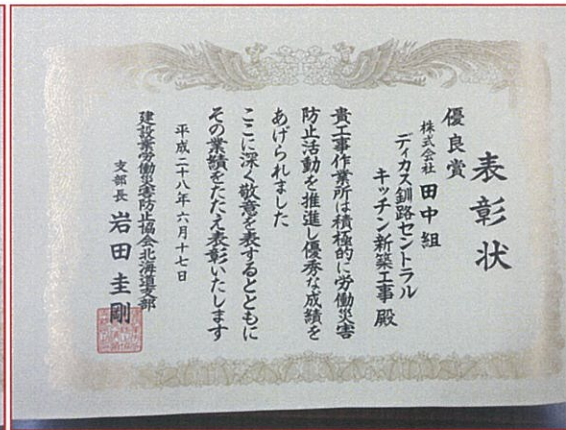 表彰状
優良賞
株式会社 田中組
ディカス釧路セントラル
キッチン新築工事 殿
貴工事作業所は積極的に労働災害
防止活動を推進し優秀な成績を
あげられました
ここに深く敬意を表するとともに
その業績をたたえ表彰いたします
平成二十八年六月十七日
建設業労働災害防止協会北海道支部
支部長 岩田圭剛